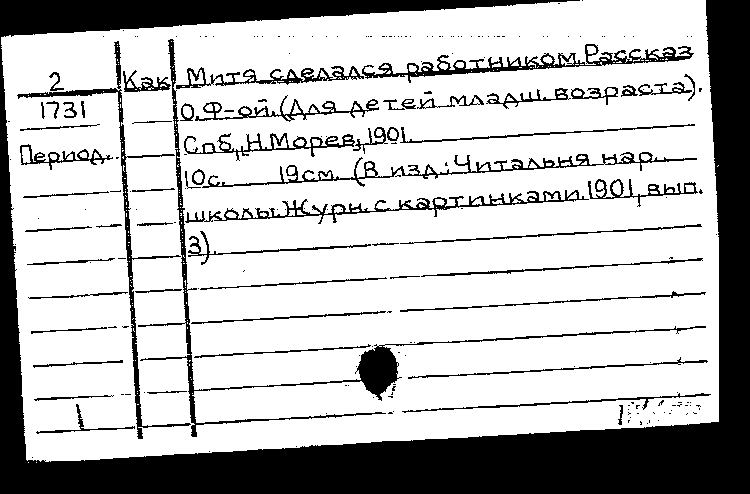 2 Как Митя сделался работником. Рассказ
1731 О. Ф-ой. (Для детей младш. возраста).
Период. Спб., Н. Морев, 1901.
10с. 19см. (В изд.: Читальня нар.
школы. Журн. с картинками. 1901, вып.
3).